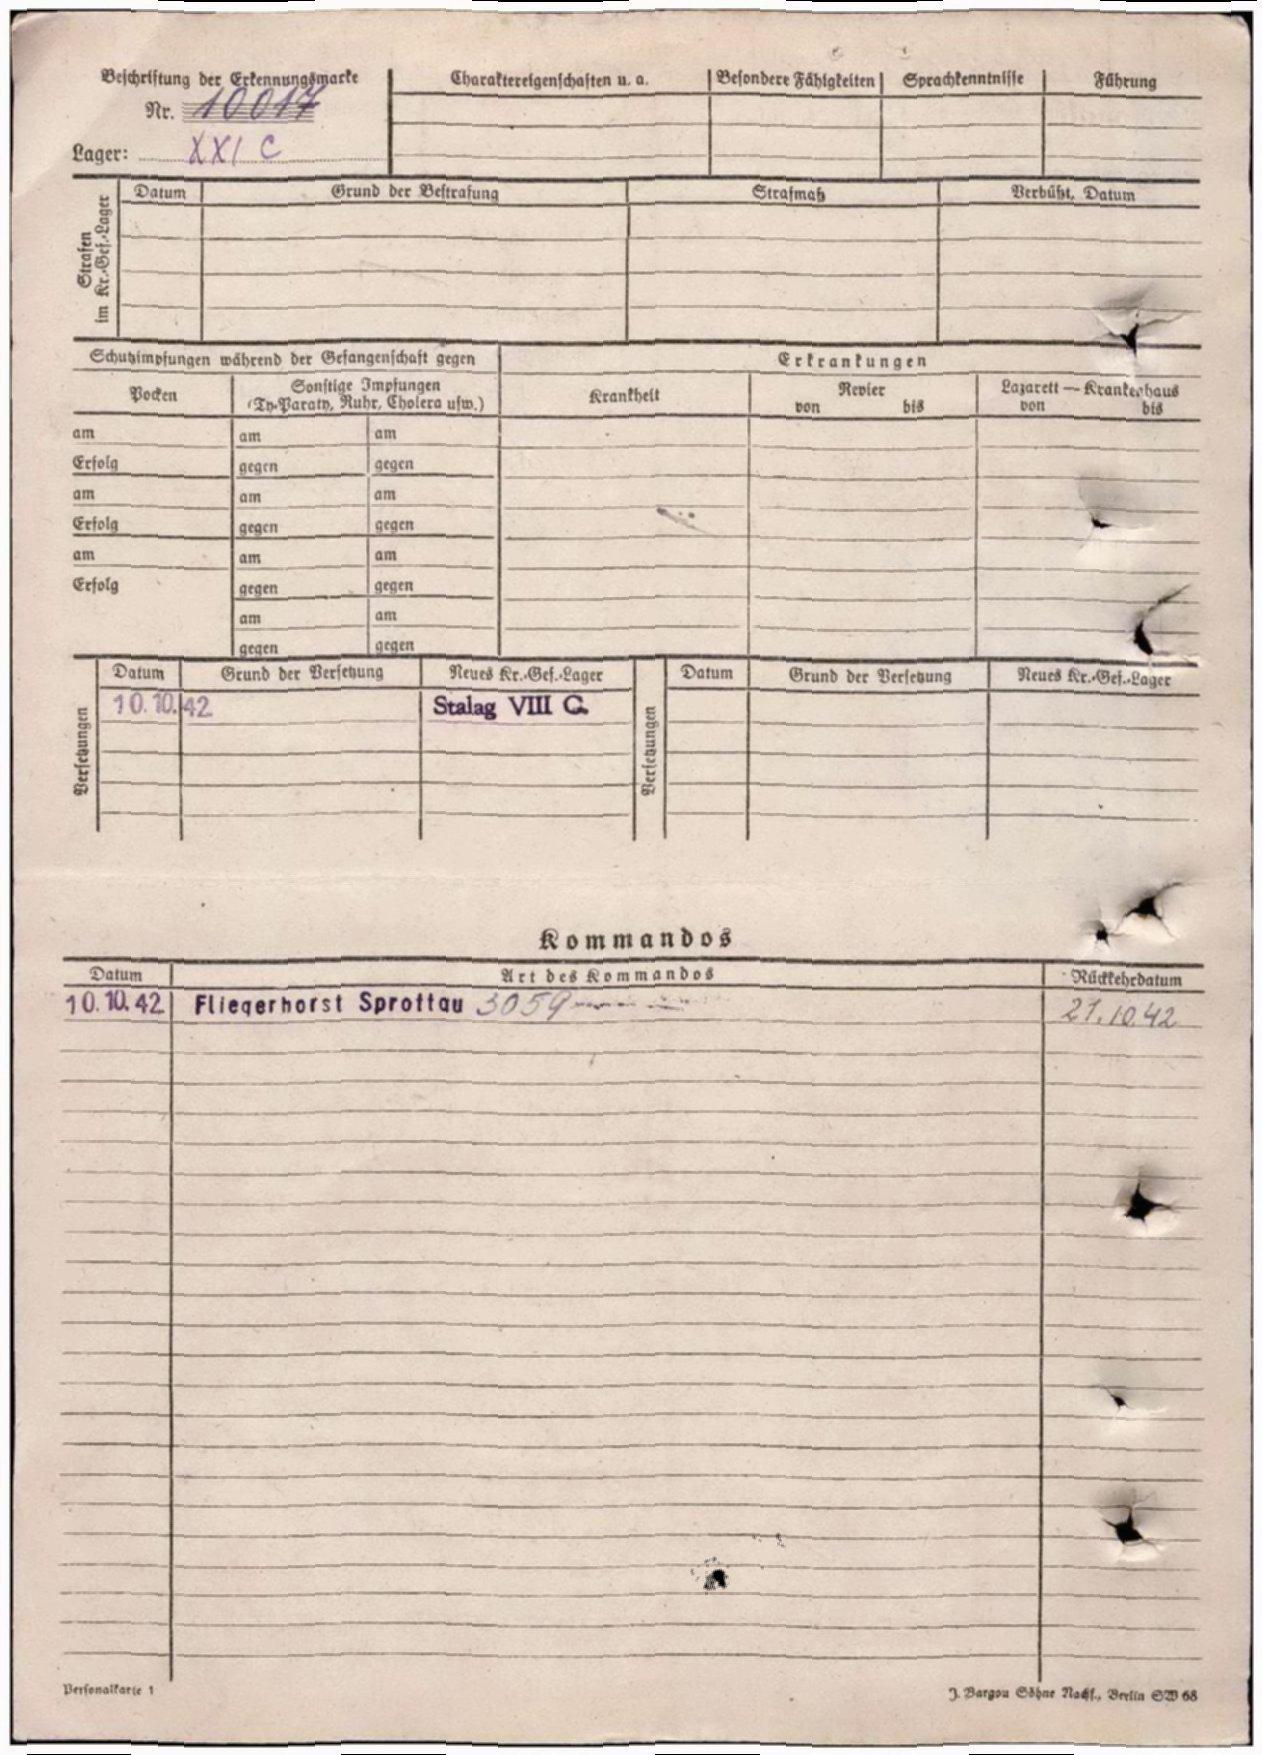 Beschriftung der Erkennungsmarke
Nr. 10017
Lager: XXI C
Charaktereigenschaften u. a.
Besondere Fähigkeiten
Sprachkenntnisse
Führung
Strafen im Kr.-Gef.-Lager
Datum
Grund der Bestrafung
Strafmaß
Verbüßt, Datum
Schutzimpfungen während der Gefangenschaft gegen
Erkrankungen
Pocken
Sonstige Impfungen
(Ty-Paraty, Ruhr, Cholera usw.)
Krankheit
Revier
von bis
Lazarett — Krankenhaus
von bis
am am am
Erfolg gegen gegen
am am am
Erfolg gegen gegen
am am am
Erfolg gegen gegen
am am
gegen gegen
Versetzungen
Datum Grund der Versetzung Neues Kr.-Gef.-Lager
10.10.42 Stalag VIII C.
Versetzungen
Datum Grund der Versetzung Neues Kr.-Gef.-Lager
Kommandos
Datum Art des Kommandos Rückkehrdatum
10.10.42 Fliegerhorst Sprottau 3059 21.10.42
Personalkarte 1
J. Bargou Söhne Nachf., Berlin SW 68